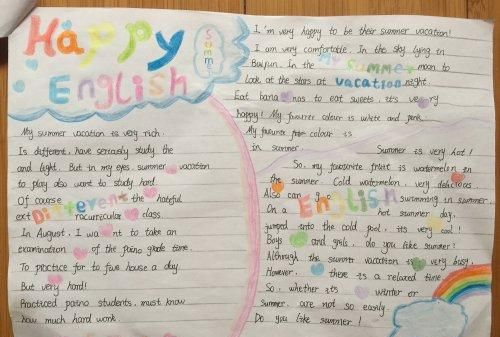 Happy
English
Summer
My summer vacation is very rich.
Is different. have seriously study the
and light. But in my eyes. summer vacation
to play also want to study hard.
Of course Different the hateful
extracurricular class.
In August. I want to take an
examination of the paino grade time.
To practice for to five house a day.
But very hard!
Practiced paino students. must know
how much hard work.
I'm very happy to be their summer vacation!
I am very comfortable. In the sky lying in
In the My summer moon to
Look at the stars at vacation night
Eat bananas to eat sweets. it's very
happy! My favourer colour is white and pink.
My favourite colour is
in summer. Summer is very hot!
So. my favourite fruit is watermelon in
the summer. Cold watermelon. very delicious.
Also can go English swimming in summer.
On a hot summer day,
jumped into the cold pool, its very cool!
Boys and girls, do you like summer?
Although the summer vacation is very busy,
However, there is a relaxed time.
So, whether its winter or
summer. are not so easily.
Do you like summer!